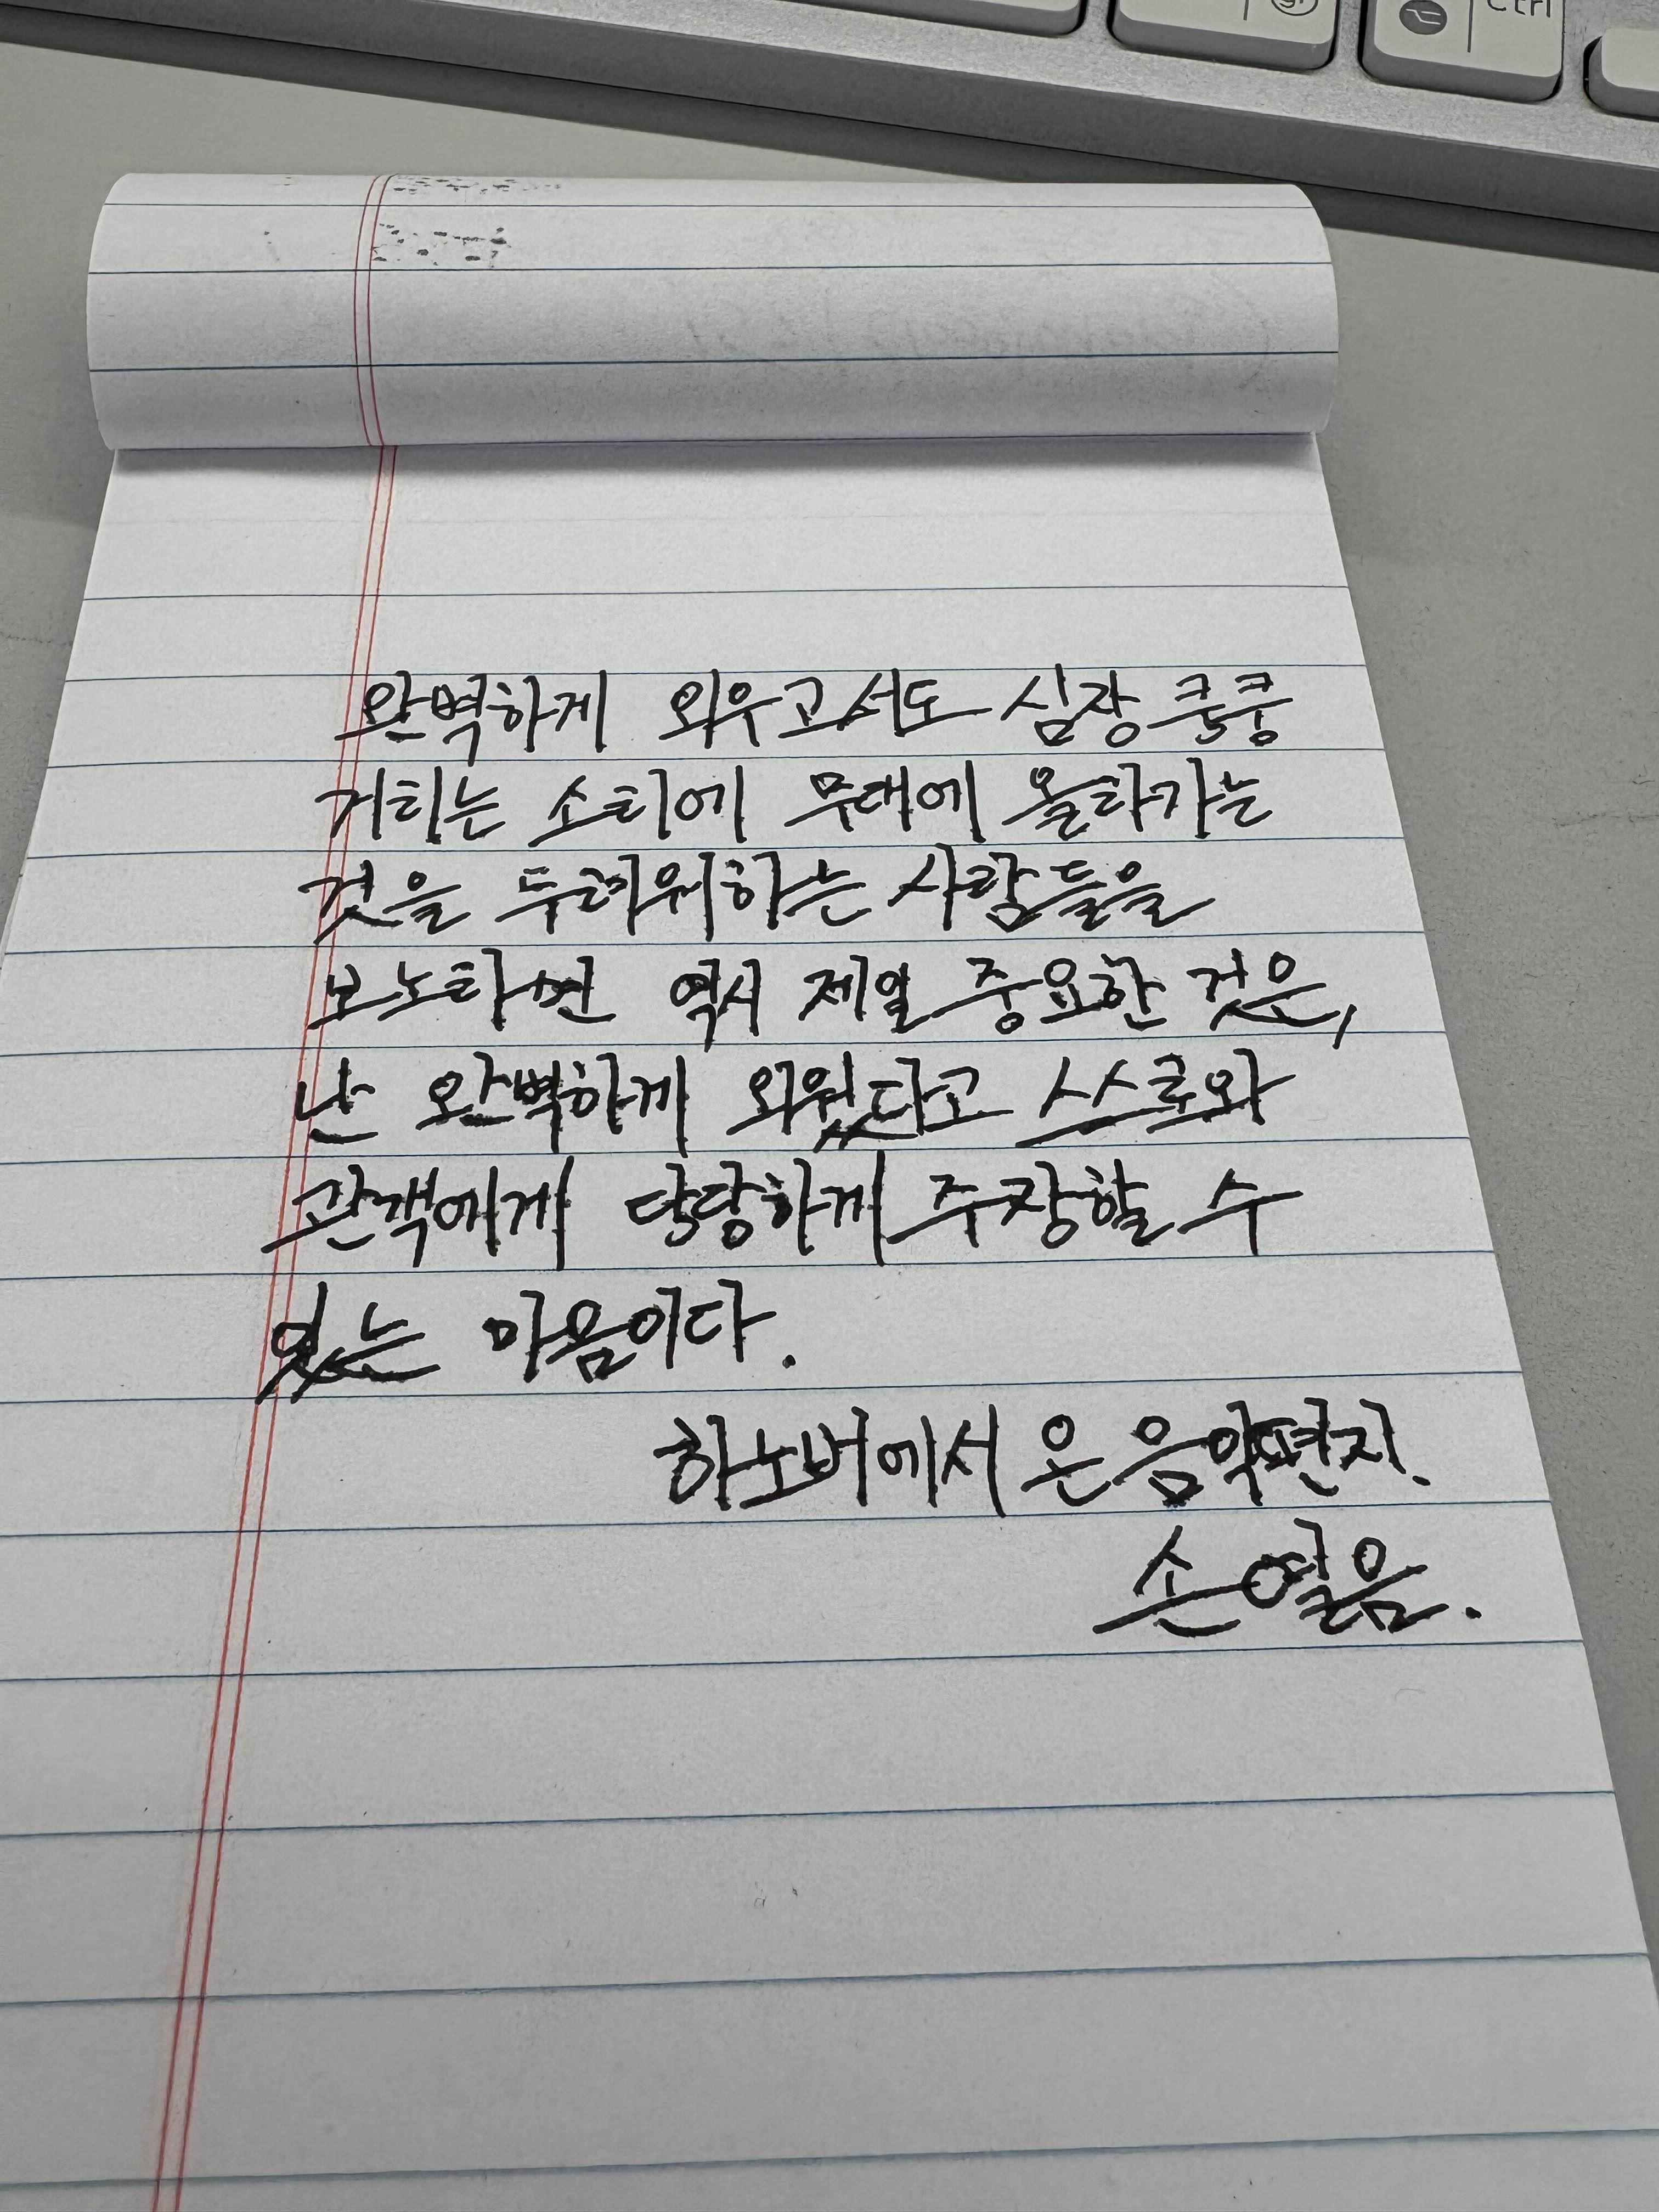 gr
Ctrl
완벽하게 외우고서도 심장 쿵쿵
거리는 소리에 무대에 올라가는
것을 두려워하는 사람들을
보노라면 역시 제일 중요한 것은,
난 완벽하게 외웠다고 스스로와
관객에게 당당하게 주장할 수
있는 마음이다.
하노버에서 온 음악편지.
손열음.